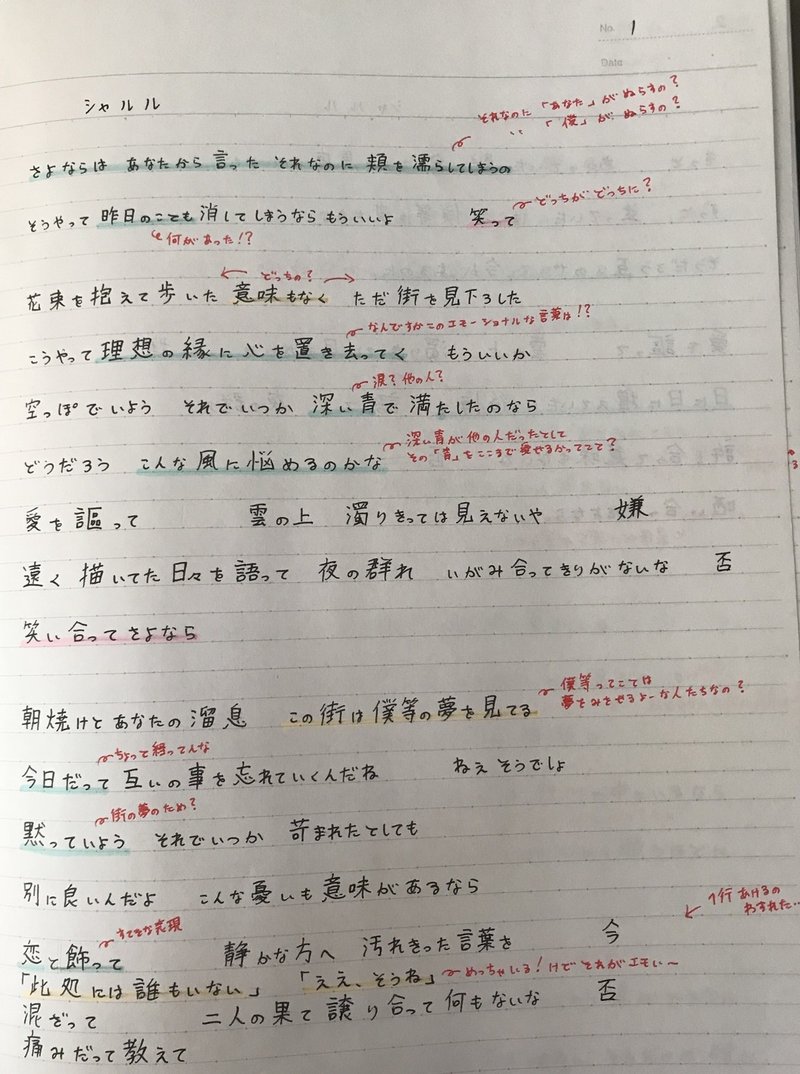 No. 1
Date
シャルル
それなのに「あなた」がぬらすの?
〃「僕」がぬらすの?
さよならは あなたから 言った それなのに 頬を濡らしてしまうの
そうやって 昨日のことも 消してしまうなら もういいよ 笑って
どっちがどっちに?
何があった!?
どっちの?
花束を抱えて歩いた 意味もなく ただ街を見下ろした
なんですかこのエモーショナルな言葉は!?
こうやって 理想の縁に 心を置き去ってく もういいか
涙?他の人?
空っぽでいよう それでいつか 深い青で 満たしたのなら
深い青が他の人だったとして
その「青」をこころで愛せるかってこて?
どうだろう こんな風に悩めるのかな
愛を謳って 雲の上 濁りきっては見えないや 嫌
遠く 描いてた日々を 語って 夜の群れ いがみ合ってきりがないな 否
笑い合ってさよなら
僕等ってことは
夢をみさせるよーな人たちなの?
朝焼けとあなたの溜息 この街は僕等の夢を見てる
ちょって経ってんな
今日だって 互いの事を忘れていくんだね ねぇそうでしょ
街の夢のため?
黙っていよう それでいつか 苛まれたとしても
別に良いんだよ こんな憂いも意味があるなら
1行あけるの
わすれた…
すてきな表現
恋と飾って 静かな方へ 汚れきった言葉を 今
「此処には誰もいない」「ええ、そうね」
めっちゃいる!けどそれがエモい〜
混ざって 二人の果て 譲り合って何もないな 否
痛みだって教えて